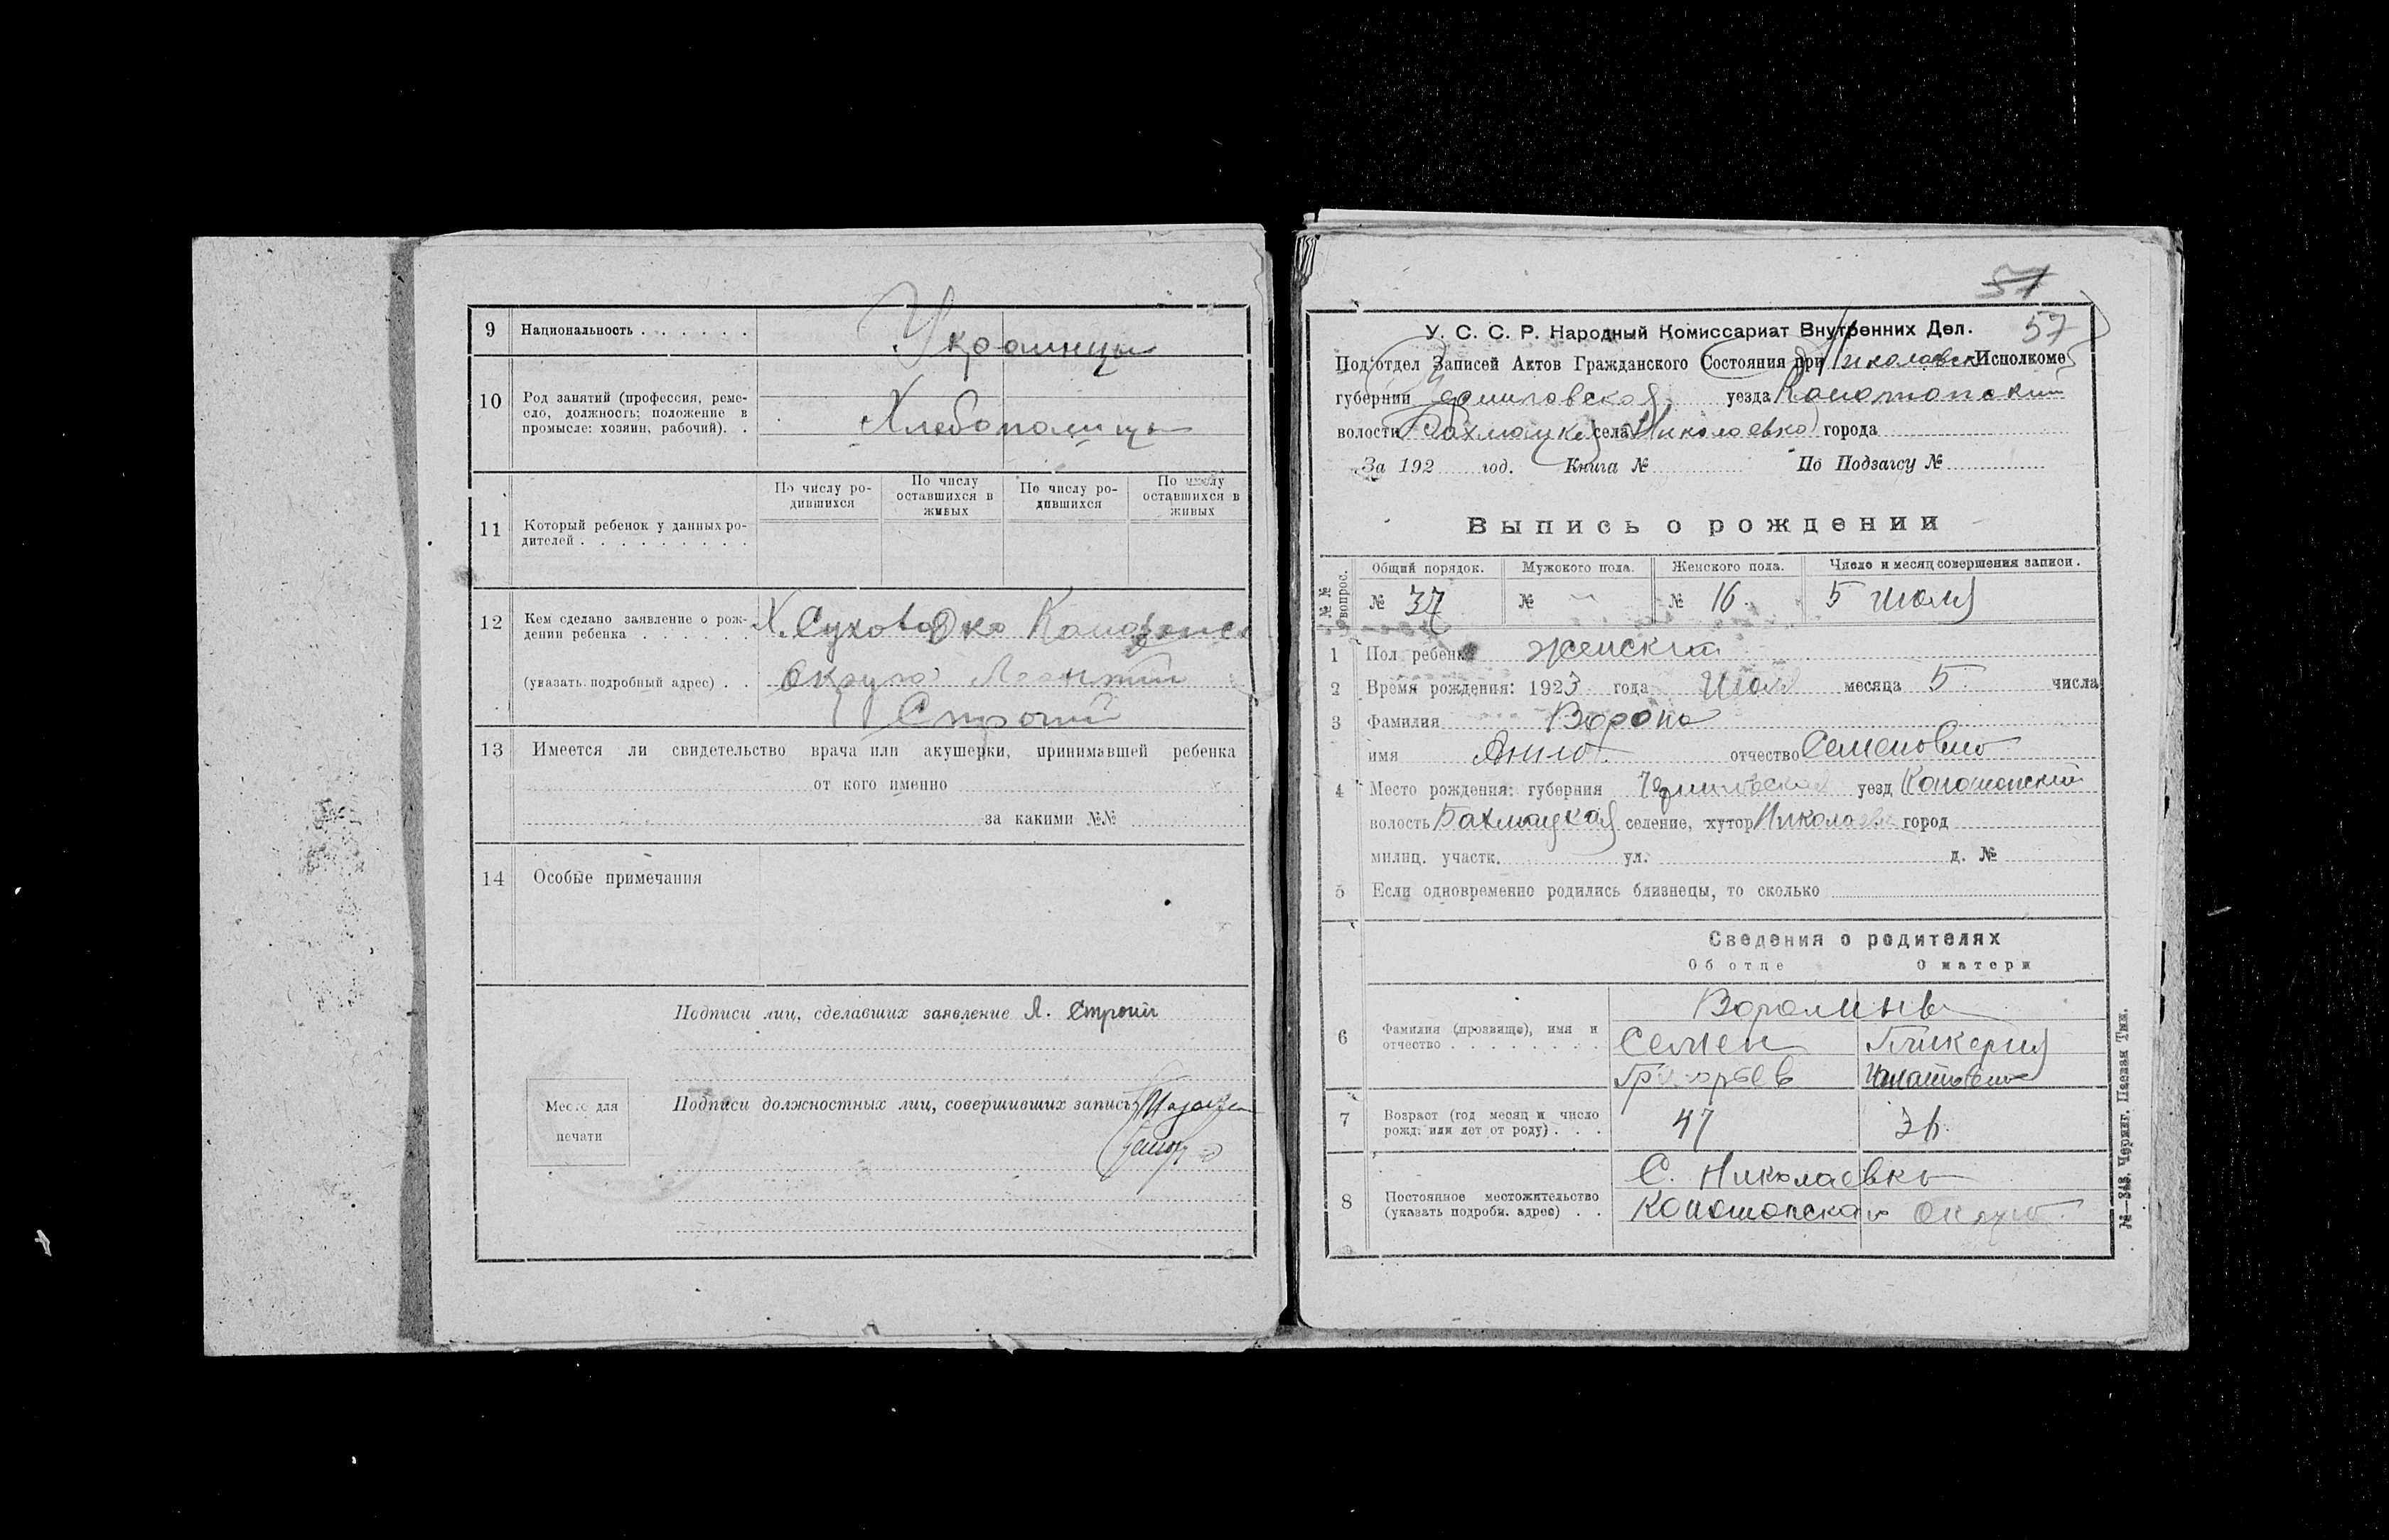 9 Национальность . . . . . . Украинцы
10 Род занятий (профессия, реме-
сло, должность; положение в
промысле: хозяин, рабочий). . Хлебопашцы
По числу ро-
дившихся
По числу
оставшихся в
живых
По числу ро-
дившихся
По числу
оставшихся в
живых
11 Который ребенок у данных ро-
дителей . . . . . . . . .
12 Кем сделано заявление о рож-
дении ребенка . . . . . . . Х.
(указать подробный адрес) . . Округа
Строй
13 Имеется ли свидетельство врача или акушерки, принимавшей ребенка
от кого именно
за какими №№
14 Особые примечания
Подписи лиц, сделавших заявление Л. Строй
Место для
печати
Подписи должностных лиц, совершивших запись
51
57
У. С. С. Р. Народный Комиссариат Внутренних Дел.
Подотдел Записей Актов Гражданского Состояния при Николаевск Исполкоме
губернии Черниговской уезда Конотопский
волости Бахмацкая села Николаевка города
За 192 год. Книга № По Подзагсу №
Выпись о рождении
№№ вопрос.
Общий порядок. Мужского пола. Женского пола. Число и месяц совершения записи.
№ 37 № — № 16. 5 июля
1 Пол ребенка женский
2 Время рождения: 1923 года Июля месяца 5 числа
3 Фамилия Ворона
имя Анна отчество Семеновна
4 Место рождения: губерния Черниговская уезд Конотопский
волость Бахмацкая селение, хутор Николаевка город
милиц. участк. ул. д. №
5 Если одновременно родились близнецы, то сколько
Сведения о родителях
Об отце О матери
6 Фамилия (прозвище), имя и
отчество . . . . . . . .
Семен
Григорьев
7 Возраст (год месяц и число
рожд. или лет от роду) . . . 47 36.
8 Постоянное местожительство
(указать подробн. адрес) . .
С. Николаевка
Конотопская Округа
№—343. Черниг. Паевая Тип.